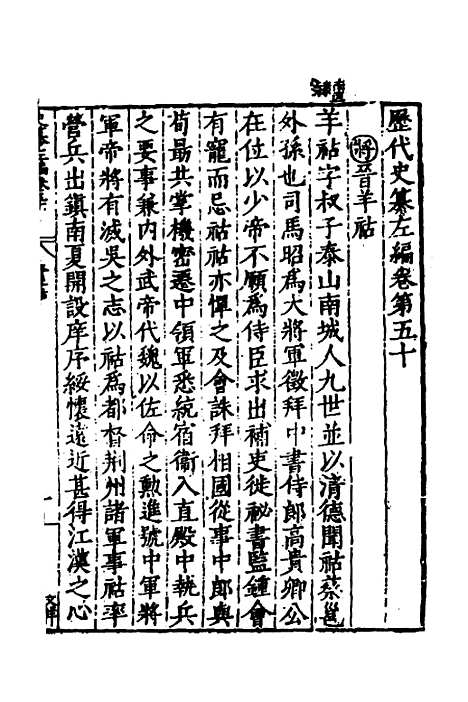 歷代史纂左編卷第五十
將 晉羊祜
羊祜字叔子泰山南城人九世並以清德聞祜蔡邕
外孫也司馬昭為大將軍徵拜中書侍郎高貴鄉公
在位以少帝不願為侍臣求出補吏徙祕書監鍾會
有寵而忌祜祜亦憚之及會誅拜相國從事中郎與
荀勗共掌機密遷中領軍悉統宿衛入直殿中執兵
之要事兼內外武帝代魏以佐命之勲進號中軍將
軍帝將有滅吳之志以祜為都督荊州諸軍事祜率
營兵出鎮南夏開設庠序綏懷遠近甚得江漢之心